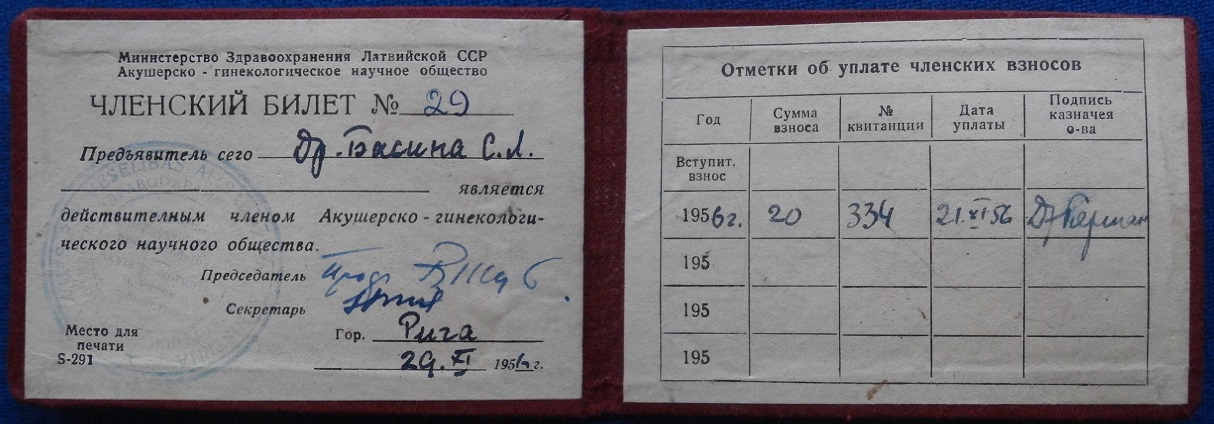 Министерство Здравоохранения Латвийской ССР
Акушерско - гинекологическое научное общество
ЧЛЕНСКИЙ БИЛЕТ № 29
Предъявитель сего Др. Басина С.Л.
является
действительным членом Акушерско - гинекологи-
ческого научного общества.
Председатель
Секретарь
Место для
печати
S-291
Гор. Рига
29. XI 1956 г.
Отметки об уплате членских взносов
Год Сумма взноса № квитанции Дата уплаты Подпись казначея о-ва
Вступит. взнос
1956г. 20 334 21.XI 56
195
195
195